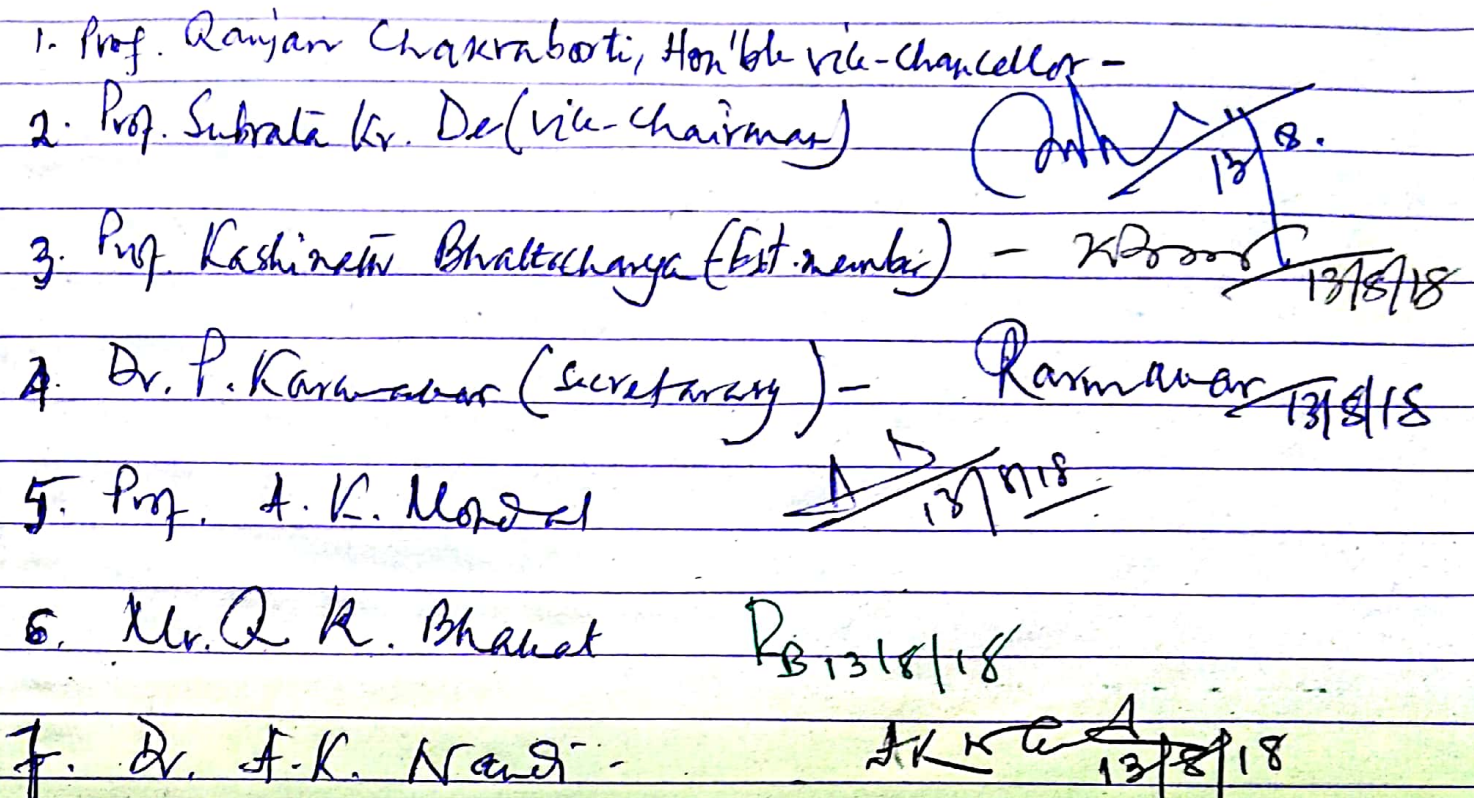 1. Prof. Ranjan Chakraborti, Hon'ble vice-chancellor -
2. Prof. Subrata Kr. De (vice-chairman) 13/8.
3. Prof. Kashinath Bhattacharya (Ext. member) - 13/8/18
4. Dr. P. Karmakar (secretarary) - Karmakar 13/8/18
5. Prof. A. K. Mondal 13/8/18
6. Mr. R. K. Bhakat RB 13/8/18
7. Dr. A. K. Nandi - 13/8/18